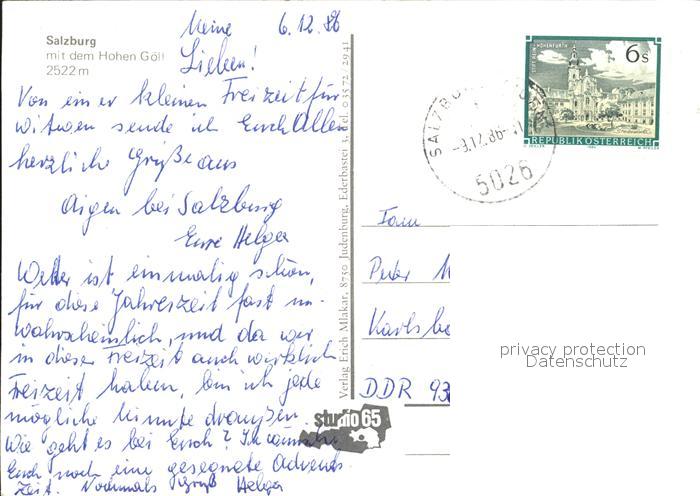 Salzburg
mit dem Hohen Göll
2522 m
Meine 6.12.86
Lieben!
Von einer kleinen Freizeit für
Witwen sende ich Euch Allen
herzliche Grüße aus
Aigen bei Salzburg
Eure Helga
Wetter ist einmalig schön,
für diese Jahreszeit fast un-
wahrscheinlich, und da wir
in dieser Freizeit auch wirklich
Freizeit haben, bin ich jede
mögliche Minute draußen.
Wie geht es bei Euch? Ich wünsche
Euch noch eine gesegnete Advents
Zeit. Nochmals Gruß Helga
Verlag Erich Mlakar, 8750 Judenburg, Ederbastei 3, Tel. 0 35 72 / 29 41
studio 65
6 S
REPUBLIK ÖSTERREICH
SALZBURG
12.86
5026
Fam
Peter M
Karlsbe
DDR 93
privacy protection
Datenschutz